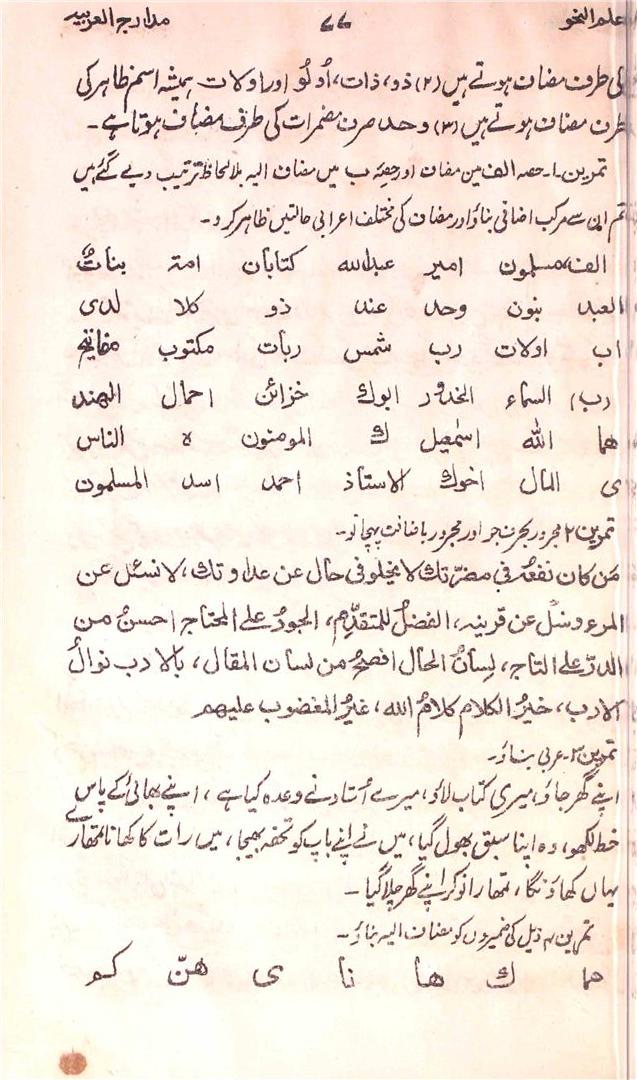 علم النحو ۷۷ مدارج العربیہ
کی طرف مضاف ہوتے ہیں (۲) ذو، ذات، أولُو اور اولات ہمیشہ اسم ظاہر کی
طرف مضاف ہوتے ہیں (۳) وحد صرف مضمرات کی طرف مضاف ہوتا ہے۔
تمرین ۱۔ حصہ الف میں مضاف اور حصّہ ب میں مضاف الیہ بلا لحاظ ترتیب دیے گئے ہیں
تم ان سے مرکب اضافی بناؤ اور مضاف کی مختلف اعرابی حالتیں ظاہر کرو۔
الف، مسلمون امیر عبداللہ کتابان امۃ بنات
العبد بنون وحد عند ذو کلا لدی
اب اولات رب شمس ربات مکتوب مفاتیح
(ب) السماء الخدور ابوك خزائن احمال الهند
هما اللہ اسمٰعیل ك المومنون ه الناس
ی المال اخوك الاستاذ احمد اسد المسلمون
تمرین ۲ مجرور بحرف جر اور مجرور باضافت پہچانو۔
مَن كان نفعُه في مضرّتك لا يخلو في حال عن عداوتك، لا تسئل عن
المرء وسَل عن قرينه، الفضلُ للمتقدِّم، الجودُ على المحتاج احسنُ من
الدرّ على التاج، لِسانُ الحال افصحُ من لسان المقال، بالادب نوالُ
الادب، خيرُ الكلام كلامُ الله، غيرُ المغضوب عليهم
تمرین ۳۔ عربی بناؤ۔
اپنے گھر جاؤ، میری کتاب لاؤ، میرے اُستاد نے وعدہ کیا ہے، اپنے بھائی کے پاس سے
خط لکھو، وہ اپنا سبق بھول گیا، میں نے اپنے باپ کو تحفہ بھیجا، میں رات کا کھانا تمھارے
یہاں کھاؤنگا، تمھارا نوکر اپنے گھر چلا گیا۔
تمرین ۴ ذیل کی ضمیروں کو مضاف الیہ بناؤ۔
هما ك ها نا ی هنّ كم